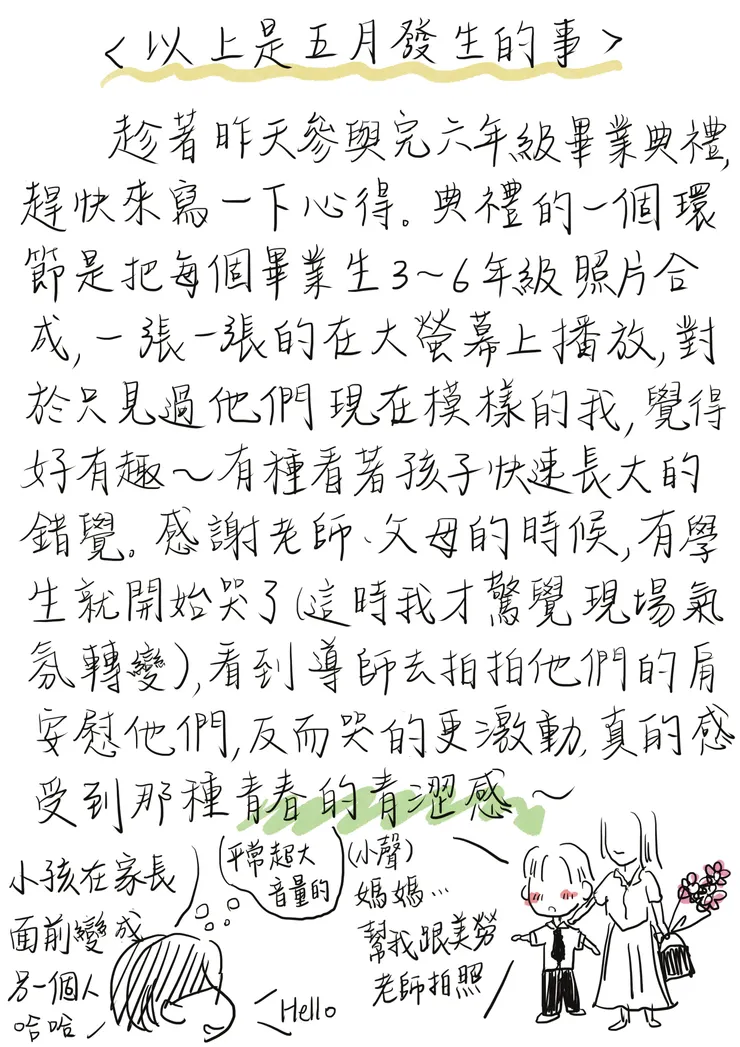 <以上是五月發生的事>
趁著昨天參與完六年級畢業典禮,
趕快來寫一下心得。典禮的一個環
節是把每個畢業生3~6年級照片合
成,一張一張的在大螢幕上播放,對
於只見過他們現在模樣的我,覺得
好有趣~有種看著孩子快速長大的
錯覺。感謝老師、父母的時候,有學
生就開始哭了(這時我才驚覺現場氣
氛轉變),看到導師去拍拍他們的肩
安慰他們,反而哭的更激動,真的感
受到那種青春的青澀感~
小孩在家長
面前變成
另一個人
哈哈
平常超大
音量的
Hello
(小聲)
媽媽…
幫我跟美勞
老師拍照